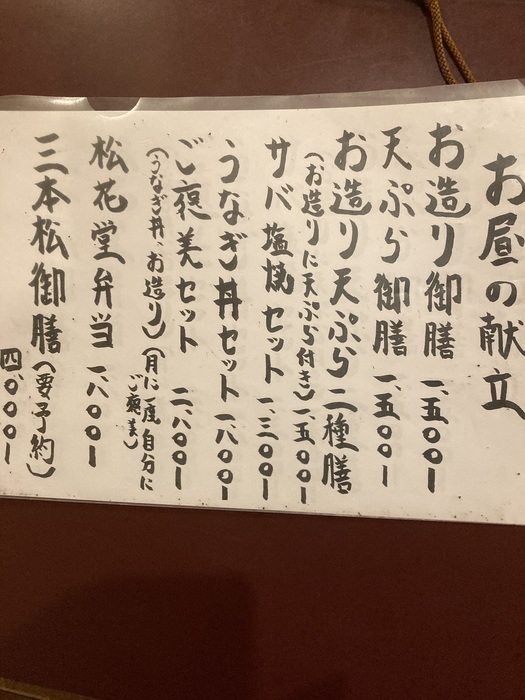 お昼の献立
お造り御膳 一、五〇〇ー
天ぷら御膳 一、五〇〇ー
お造り天ぷら二種膳
（お造りに天ぷら付き）一、五〇〇ー
サバ塩焼セット 一、三〇〇ー
うなぎ丼セット 一、八〇〇ー
ご褒美セット 二、八〇〇ー
（うなぎ丼、お造り）（月に一度自分に
ご褒美）
松花堂弁当 一、八〇〇ー
三本松御膳（要予約）
四、〇〇〇ー